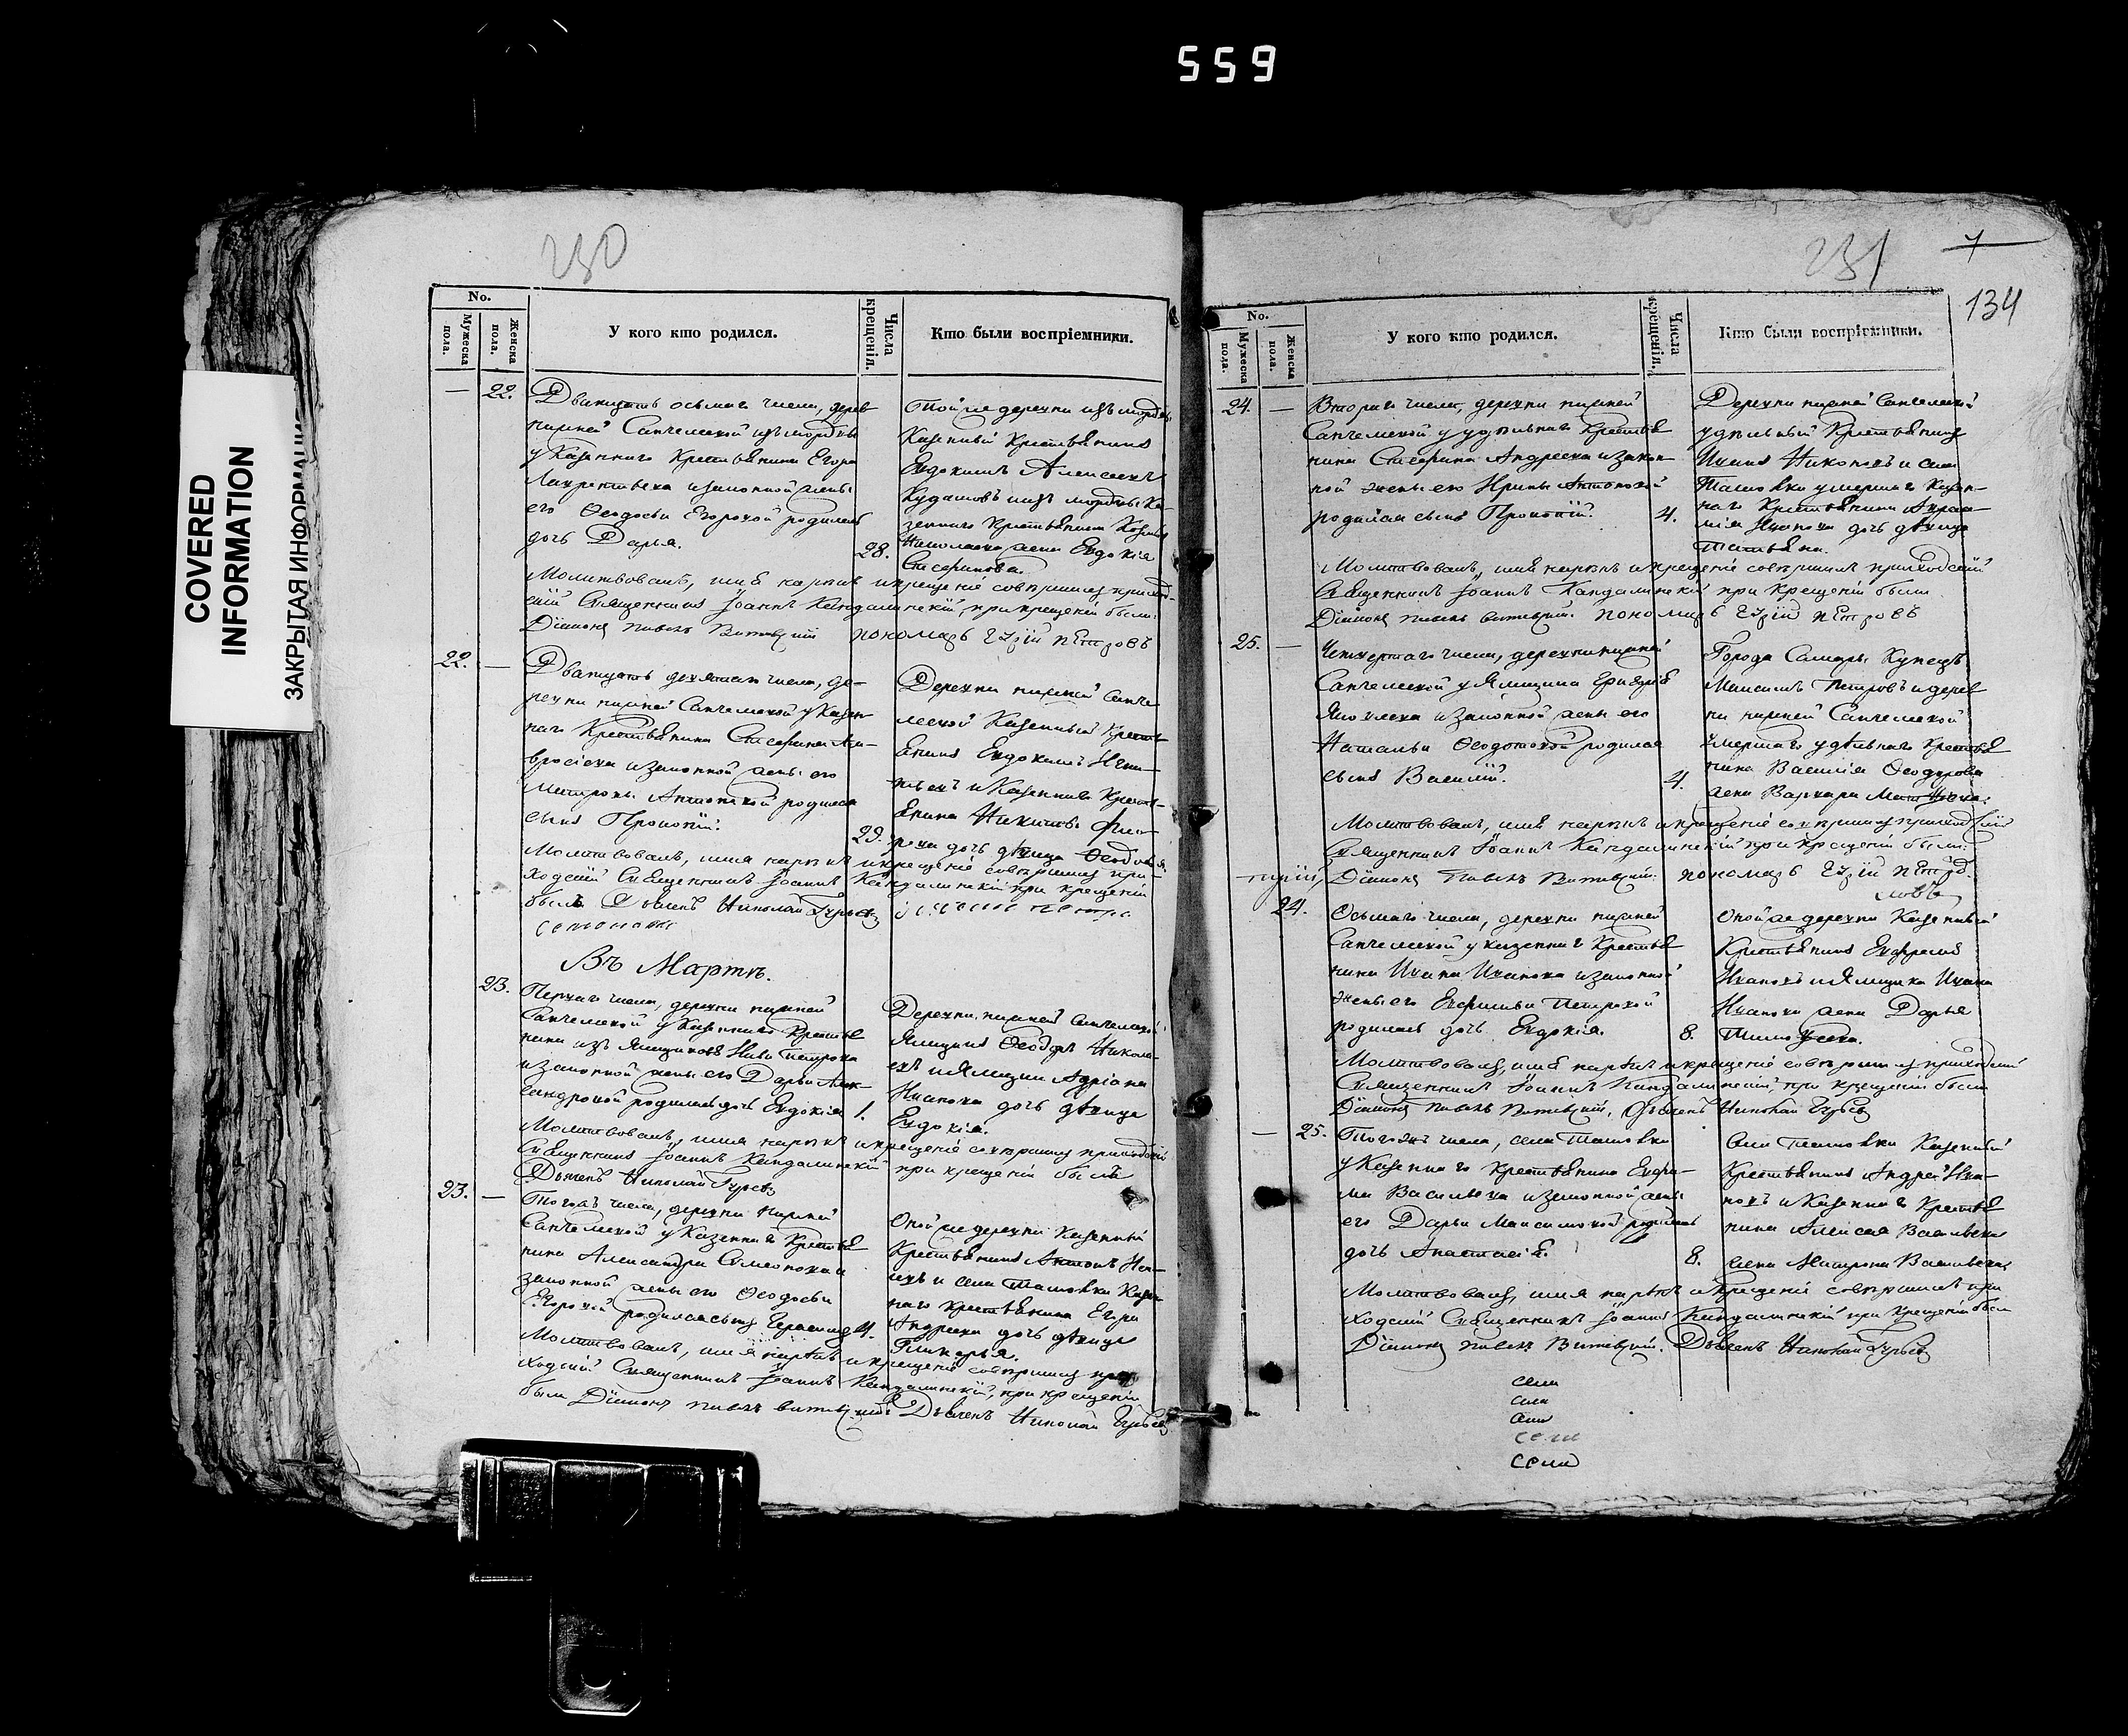 559
COVERED
INFORMATION
ЗАКРЫТАЯ ИНФОРМАЦИЯ
230
No.
Мужеска пола.
Женска пола.
У кого кто родился.
Числа крещенія.
Кто были воспріемники.
— 22.
Двадцать осьмаго числа, дерев
нижней Санчелеской изъ мордвы
у Казеннаго Крестьянина Егора
Лаврентьева и законной жены
его Ѳеодосьи Егоровой родилась
дочь Дарья.
28.
Той же деревни изъ мордвы
Казенный Крестьянинъ
Евдокимъ Алексеевъ
Кудашовъ и изъ мордвы Ка-
зеннаго Крестьянина
Николаева жена Евдокія
Молитвовалъ, имя нарекъ и крещеніе совершилъ приход-
скій Священникъ Іоаннъ Кандалинскій, при крещеніи были:
Діаконъ Павелъ пономарь Петровъ
22. —
Двадцать девятаго числа, де-
ревни нижней Санчелеской у Казен-
наго Крестьянина Ам-
вросіева и законной жены его
Матроны Антоновой родился
сынъ Прокопій.
29.
Деревни нижней Санче
леской Казенный Кресть
янинъ Евдокимъ Игна-
тьевъ и Казеннаго Кресть-
янина Никиты
дочь дѣвица
Молитвовалъ, имя нарекъ и крещеніе совершилъ при-
ходскій Священникъ Іоаннъ Кандалинскій при крещеніи
былъ Дьячекъ Николай Гурьевъ
Въ Мартѣ.
23.
Перваго числа, деревни нижней
Санчелеской у Казеннаго Крестья
нина изъ Ямщиковъ Петрова
и законной жены его Дарьи Алек-
сандровой родилась дочь Евдокія
1.
Деревни нижней Санчелеской
Ямщикъ Ѳеодоръ Никола-
евъ и Ямщика Адріана
Иванова дочь дѣвица
Евдокія.
Молитвовалъ, имя нарекъ и крещеніе совершилъ приходскій
Священникъ Іоаннъ Кандалинскій при крещеніи былъ
Дьячекъ Николай Гурьевъ
23. —
Тогожъ числа, деревни нижней
Санчелеской у Казеннаго Крестья
нина Александра Симеонова и
законной жены его Ѳеодосьи
Егоровой родился сынъ Герасимъ
4.
Оной же деревни Казенный
Крестьянинъ Антонъ
и села Ташовки Казен-
наго крестьянина Егора
Андреева дочь дѣвица
Гликерья.
Молитвовалъ, имя нарекъ и крещеніе совершилъ при
ходскій Священникъ Іоаннъ Кандалинскій, при крещеніи
были Діаконъ Павелъ Дьячекъ Николай Гурьевъ
231
7
134
No.
Мужеска пола.
Женска пола.
У кого кто родился.
Числа крещенія.
Кто были воспріемники.
24. —
Втораго числа, деревни нижней
Санчелеской у удѣльнаго Крестья
нина Андреева и закон-
ной жены его Ирины Антоновой
родился сынъ Прокопій.
4.
Деревни нижней Санчелеской
удѣльный Крестьянинъ
и села
Ташовки умершаго Казен-
наго Крестьянина
Иванова дочь дѣвица
Татьяна.
Молитвовалъ, имя нарекъ и крещеніе совершилъ приходскій
Священникъ Іоаннъ Кандалинскій при крещеніи были
Діаконъ Павелъ пономарь Петровъ
25. —
Четвертаго числа, деревни нижней
Санчелеской у Ямщика Григорья
Яковлева и законной жены его
Натальи Ѳеодотовой родился
сынъ Василій.
4.
Города Самары Купецъ
Максимъ Петровъ и дерев
ни нижней Санчелеской
умершаго удѣльнаго Крестья
нина Василія Ѳеодорова
жена Варвара
Молитвовалъ, имя нарекъ и крещеніе совершилъ приходскій
Священникъ Іоаннъ Кандалинскій при крещеніи были:
Діаконъ Павелъ пономарь
24.
Осьмаго числа, деревни нижней
Санчелеской у казеннаго Крестья
нина Ивана Иванова и законной
жены его Петровой
родилась дочь Евдокія.
8.
Оной же деревни Казенный
Крестьянинъ
Ивановъ и Ямщика Ивана
Иванова жена Дарья
Тимофеева.
Молитвовалъ, имя нарекъ и крещеніе совершилъ приходскій
Священникъ Іоаннъ Кандалинскій, при крещеніи были
Діаконъ Павелъ Дьячекъ Николай Гурьевъ
— 25.
Тогожъ числа, села Ташовки
у Казеннаго крестьянина
Васильева и законной жены
его Дарьи Максимовой родилась
дочь Анастасія.
8.
Села Ташовки Казенный
Крестьянинъ Андрей Ива-
новъ и Казеннаго Крестья
нина Алексея Васильева
жена Матрона Васильева
Молитвовалъ, имя нарекъ и крещеніе совершилъ при
ходскій Священникъ Іоаннъ Кандалинскій при крещеніи были
Діаконъ Павелъ Дьячекъ Николай Гурьевъ
села
села
села
села
села